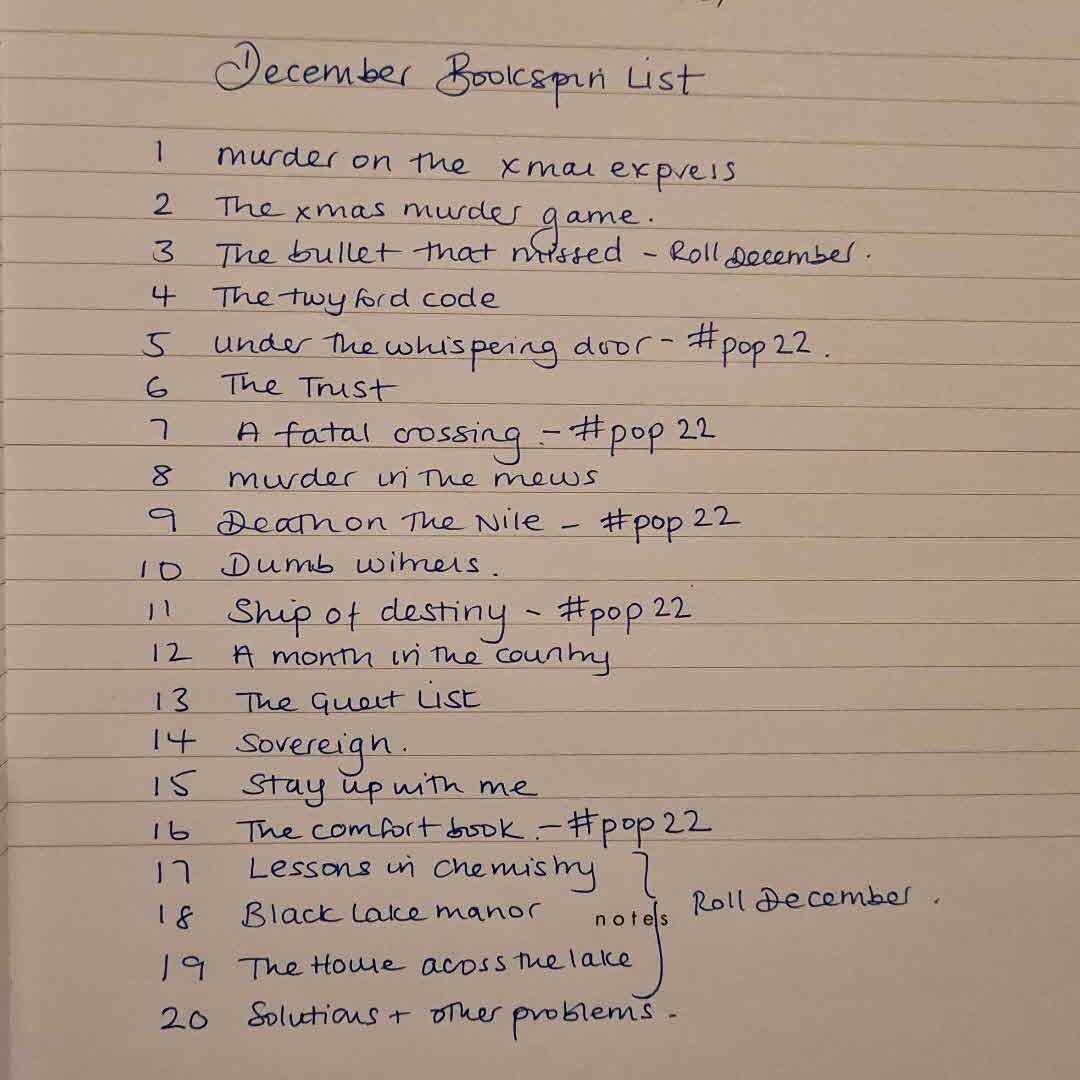 December Bookspin List
1 murder on the xmas express
2 The xmas murder game.
3 The bullet that missed - Roll December.
4 The twyford code
5 under the whispering door - #pop22.
6 The Trust
7 A fatal crossing - #pop 22
8 murder in the mews
9 Death on The Nile - #pop 22
10 Dumb witness.
11 Ship of destiny - #pop 22
12 A month in the country
13 The Guest List
14 Sovereign.
15 Stay up with me
16 The comfort book - #pop 22
17 Lessons in chemistry
18 Black Lake manor
notes
Roll December.
19 The House acoss the lake
20 Solutions + other problems.